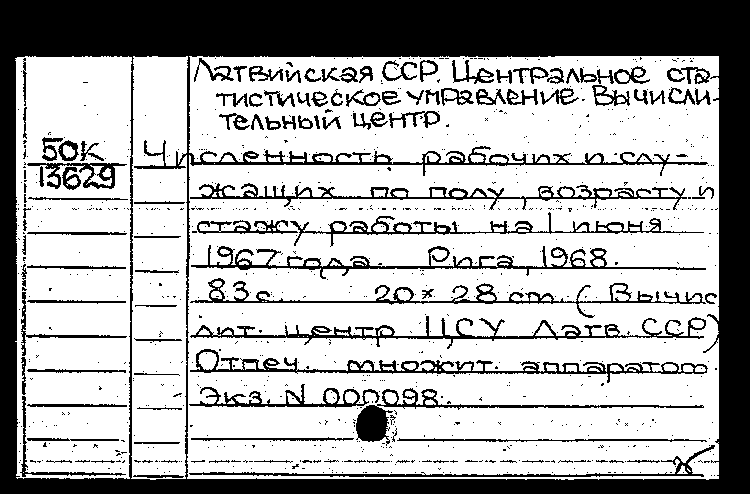 Латвийская ССР. Центральное ста-
тистическое управление. Вычисли-
тельный центр.
50К
13629
Численность рабочих и слу-
жащих по полу, возрасту и
стажу работы на 1 июня
1967 года. Рига, 1968.
83 с. 20 × 28 см. (Вычис
лит. центр ЦСУ Латв. ССР)
Отпеч. множит. аппаратом.
Экз. N 000098.